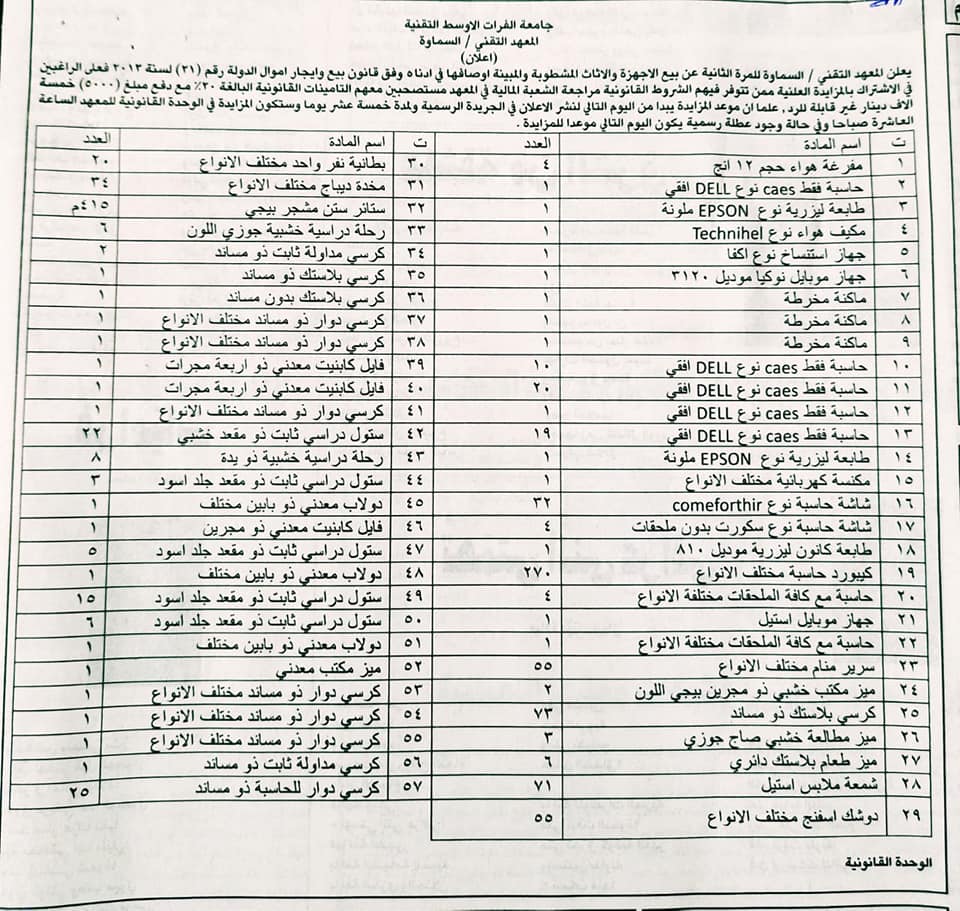 جامعة الفرات الاوسط التقنية
المعهد التقني / السماوة
(اعلان)
يعلن المعهد التقني / السماوة للمرة الثانية عن بيع الاجهزة والاثاث المشطوبة والمبينة اوصافها في ادناه وفق قانون بيع وايجار اموال الدولة رقم (٢١) لسنة ٢٠١٣ فعلى الراغبين
في الاشتراك بالمزايدة العلنية ممن تتوفر فيهم الشروط القانونية مراجعة الشعبة المالية في المعهد مستصحبين معهم التامينات القانونية البالغة ٢٠٪ مع دفع مبلغ (٥٠٠٠) خمسة
الاف دينار غير قابلة للرد ، علما ان موعد المزايدة يبدا من اليوم التالي لنشر الاعلان في الجريدة الرسمية ولمدة خمسة عشر يوما وستكون المزايدة في الوحدة القانونية للمعهد الساعة
العاشرة صباحا وفي حالة وجود عطلة رسمية يكون اليوم التالي موعدا للمزايدة .
ت اسم المادة العدد ت اسم المادة العدد
١ مفرغة هواء حجم ١٢ انج ٤ ٣٠ بطانية نفر واحد مختلف الانواع ٢٠
٢ حاسبة فقط caes نوع DELL افقي ١ ٣١ مخدة ديباج مختلف الانواع ٣٤
٣ طابعة ليزرية نوع EPSON ملونة ١ ٣٢ ستائر ستن مشجر بيجي ٤١٥م
٤ مكيف هواء نوع Technihel ١ ٣٣ رحلة دراسية خشبية جوزي اللون ٦
٥ جهاز استنساخ نوع اكفا ١ ٣٤ كرسي مداولة ثابت ذو مساند ٢
٦ جهاز موبايل نوكيا موديل ٣١٢٠ ١ ٣٥ كرسي بلاستك ذو مساند ١
٧ ماكنة مخرطة ١ ٣٦ كرسي بلاستك بدون مساند ١
٨ ماكنة مخرطة ١ ٣٧ كرسي دوار ذو مساند مختلف الانواع ١
٩ ماكنة مخرطة ١ ٣٨ كرسي دوار ذو مساند مختلف الانواع ١
١٠ حاسبة فقط caes نوع DELL افقي ١٠ ٣٩ فايل كابنيت معدني ذو اربعة مجرات ١
١١ حاسبة فقط caes نوع DELL افقي ٢٠ ٤٠ فايل كابنيت معدني ذو اربعة مجرات ١
١٢ حاسبة فقط caes نوع DELL افقي ١ ٤١ كرسي دوار ذو مساند مختلف الانواع ١
١٣ حاسبة فقط caes نوع DELL افقي ١٩ ٤٢ ستول دراسي ثابت ذو مقعد خشبي ٢٢
١٤ طابعة ليزرية نوع EPSON ملونة ١ ٤٣ رحلة دراسية خشبية ذو يدة ٨
١٥ مكنسة كهربائية مختلف الانواع ١ ٤٤ ستول دراسي ثابت ذو مقعد جلد اسود ٣
١٦ شاشة حاسبة نوع comeforthir ٣٢ ٤٥ دولاب معدني ذو بابين مختلف ١
١٧ شاشة حاسبة نوع سكورت بدون ملحقات ٤ ٤٦ فايل كابنيت معدني ذو مجرين ١
١٨ طابعة كانون ليزرية موديل ٨١٠ ١ ٤٧ ستول دراسي ثابت ذو مقعد جلد اسود ٥
١٩ كيبورد حاسبة مختلف الانواع ٢٧٠ ٤٨ دولاب معدني ذو بابين مختلف ١
٢٠ حاسبة مع كافة الملحقات مختلفة الانواع ٤ ٤٩ ستول دراسي ثابت ذو مقعد جلد اسود ١٥
٢١ جهاز موبايل استيل ١ ٥٠ ستول دراسي ثابت ذو مقعد جلد اسود ٦
٢٢ حاسبة مع كافة الملحقات مختلفة الانواع ١ ٥١ دولاب معدني ذو بابين مختلف ١
٢٣ سرير منام مختلف الانواع ٥٥ ٥٢ ميز مكتب معدني ١
٢٤ ميز مكتب خشبي ذو مجرين بيجي اللون ٢ ٥٣ كرسي دوار ذو مساند مختلف الانواع ١
٢٥ كرسي بلاستك ذو مساند ٧٣ ٥٤ كرسي دوار ذو مساند مختلف الانواع ١
٢٦ ميز مطالعة خشبي صاج جوزي ٣ ٥٥ كرسي دوار ذو مساند مختلف الانواع ١
٢٧ ميز طعام بلاستك دائري ٦ ٥٦ كرسي مداولة ثابت ذو مساند ١
٢٨ شمعة ملابس استيل ٧١ ٥٧ كرسي دوار للحاسبة ذو مساند ٢٥
٢٩ دوشك اسفنج مختلف الانواع ٥٥
الوحدة القانونية